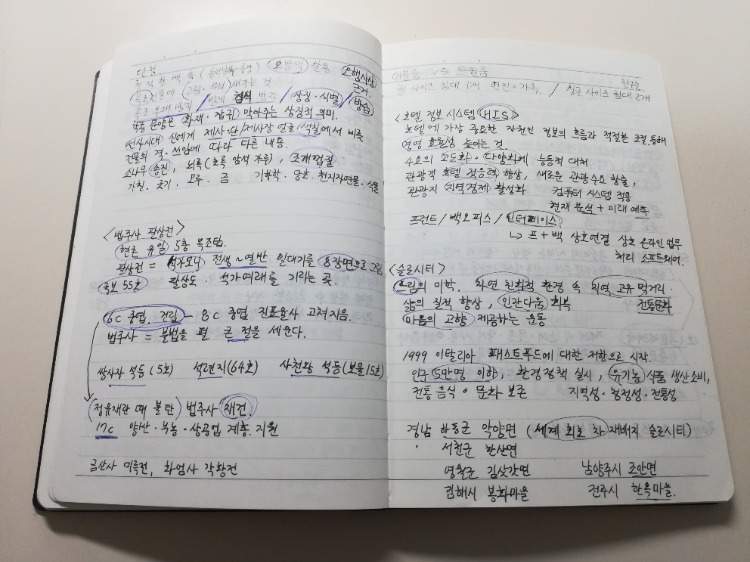 단청
오방색 상용
목조 문양은 화재·잡귀 막아주는 상징적 의미.
선사시대 신에게 제사 단/제사장 얼굴/색칠에서 비롯
건물의 격·쓰임에 따라 다른 내용.
소나무
가칠, 긋기, 모루·금 기하학·당초·천지자연물·식물
<법주사 팔상전>
현존 유일 5층 목조탑.
팔상전 = 석가모니 전생~열반 일대기를 8장면으로 그림
국보 55호 팔상도 · 석가여래를 기리는 곳.
6C 중엽, 건립 - 8C 중엽 진표율사 고쳐지음.
법주사 = 불법을 펼 큰 절을 세운다.
쌍사자 석등(5호) 석련지(64호) 사천왕 석등(보물15호)
정유재란 때 불탄 법주사 재건.
17C 양반·부농·상공업 계층 지원
금산사 미륵전, 화엄사 각황전
<호텔 정보 시스템(HIS)>
호텔에 가장 중요한 자원인 정보의 흐름과 적절한 조절 통해
경영 효율성 높이는 것
수요의 고도화·다양화에 능동적 대처
관광객 호텔 적응력 향상, 새로운 관광수요 창출,
관광지 (지역경제) 활성화 컴퓨터 시스템 적용
현재 분석 + 미래 예측
프런트/백오피스/인터페이스
↳ 프+백 상호연결 상호 온라인 업무
처리 소프트웨어.
<슬로시티>
느림의 미학. 자연 친화적 환경 속 지역 고유 먹거리
삶의 질적 향상, 인간다움 회복 전통문화
마음의 고향 제공하는 운동
1999 이탈리아 패스트푸드에 대한 저항으로 시작.
인구 5만명 이하, 환경정책 실시, 유기농 식품 생산소비,
전통 음식·문화 보존 지역성·청정성·전통성
경남 하동군 악양면 (세계 최초 차 재배지 슬로시티)
〃 서천군 한산면
영월군 김삿갓면 남양주시 조안면
김해시 봉하마을 전주시 한옥마을.